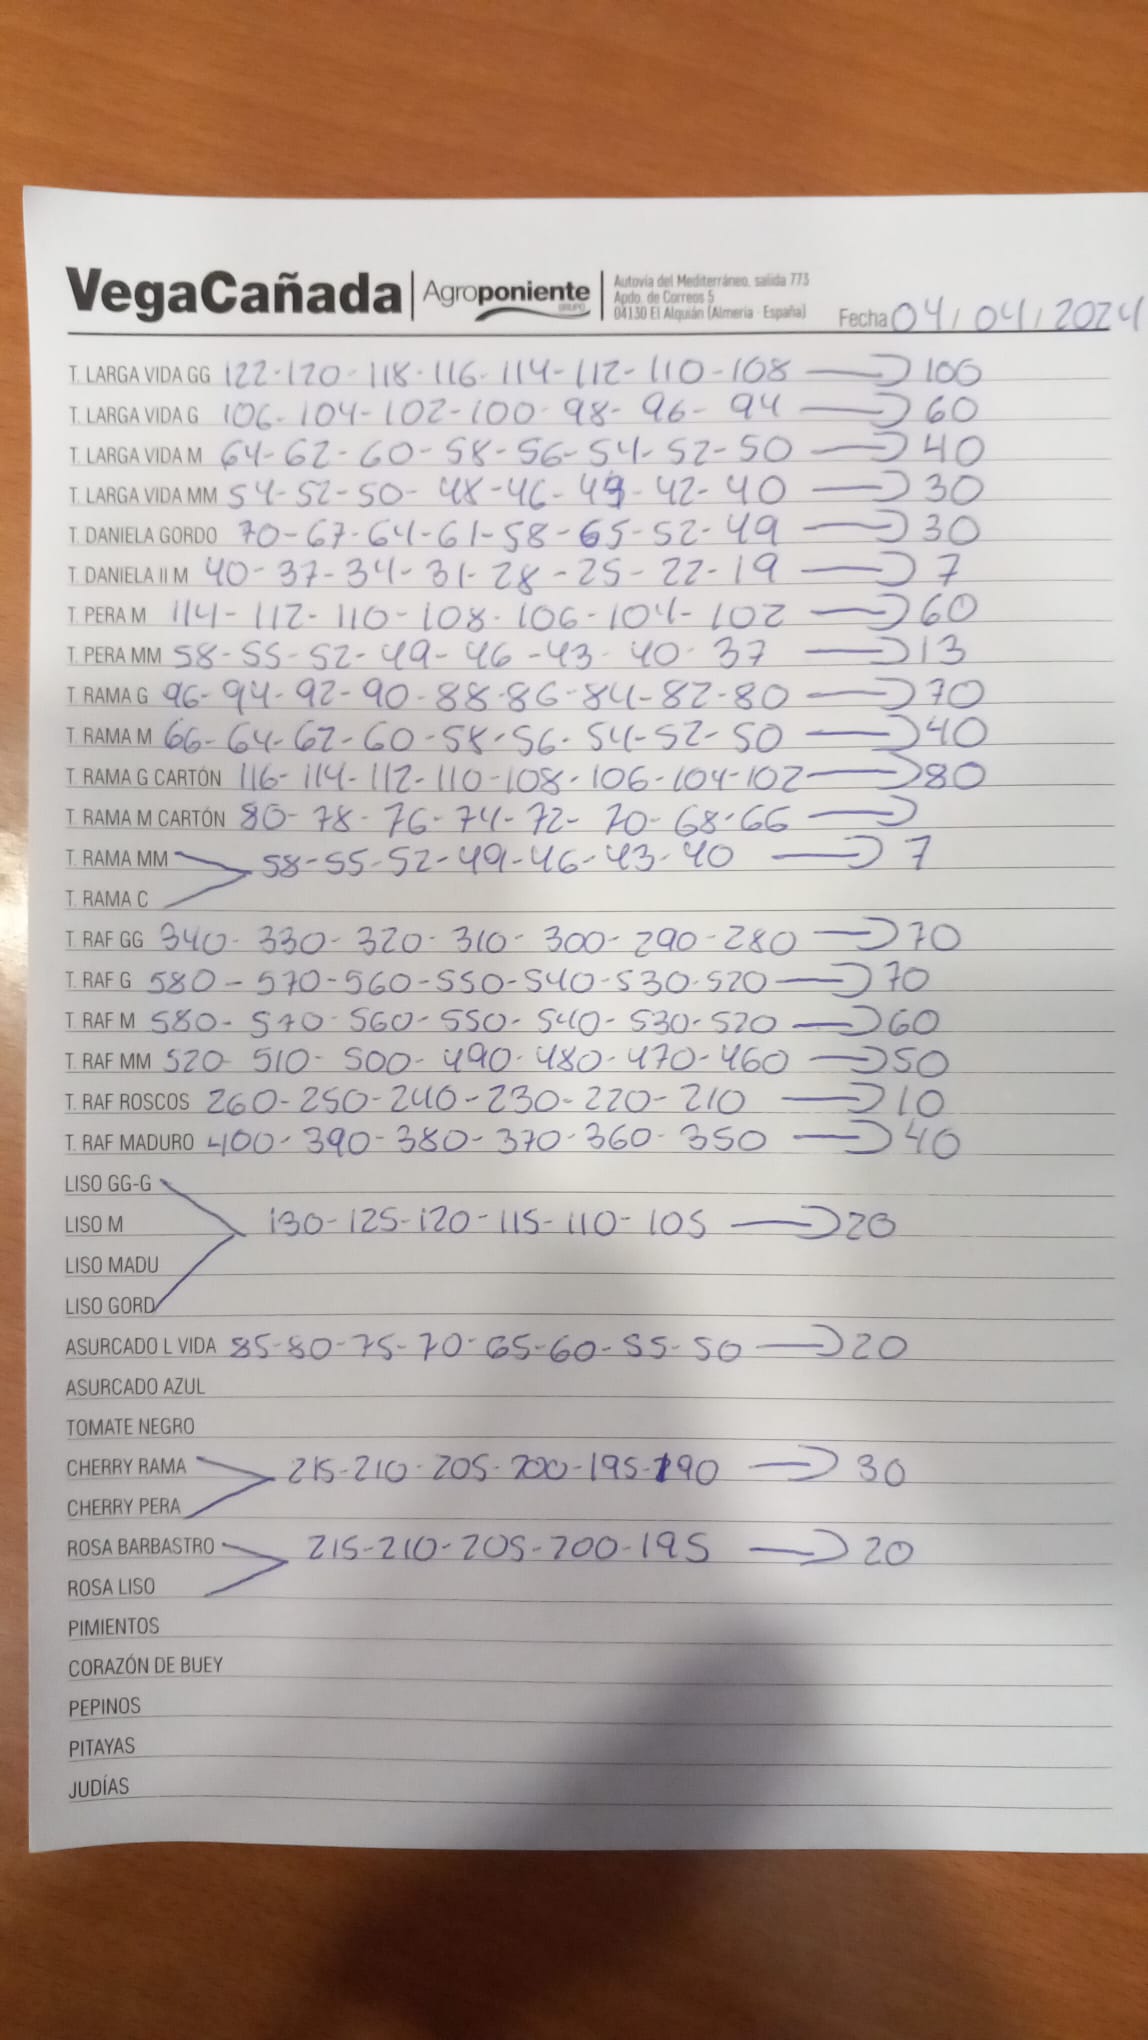 VegaCañada | Agroponiente GRUPO | Autovía del Mediterráneo, salida 773
Apdo. de Correos 5
04130 El Alquián (Almería - España)
Fecha 04/04/2024
T. LARGA VIDA GG 122-120-118-116-114-112-110-108 → 100
T. LARGA VIDA G 106-104-102-100-98-96-94 → 60
T. LARGA VIDA M 64-62-60-58-56-54-52-50 → 40
T. LARGA VIDA MM 54-52-50-48-46-44-42-40 → 30
T. DANIELA GORDO 70-67-64-61-58-65-52-49 → 30
T. DANIELA II M 40-37-34-31-28-25-22-19 → 7
T. PERA M 114-112-110-108-106-104-102 → 60
T. PERA MM 58-55-52-49-46-43-40-37 → 13
T. RAMA G 96-94-92-90-88-86-84-82-80 → 70
T. RAMA M 66-64-62-60-58-56-54-52-50 → 40
T. RAMA G CARTÓN 116-114-112-110-108-106-104-102 → 80
T. RAMA M CARTÓN 80-78-76-74-72-70-68-66 →
T. RAMA MM 58-55-52-49-46-43-40 → 7
T. RAMA C
T. RAF GG 340-330-320-310-300-290-280 → 70
T. RAF G 580-570-560-550-540-530-520 → 70
T. RAF M 580-570-560-550-540-530-520 → 60
T. RAF MM 520-510-500-490-480-470-460 → 50
T. RAF ROSCOS 260-250-240-230-220-210 → 10
T. RAF MADURO 400-390-380-370-360-350 → 40
LISO GG-G
LISO M 130-125-120-115-110-105 → 20
LISO MADU
LISO GORD
ASURCADO L VIDA 85-80-75-70-65-60-55-50 → 20
ASURCADO AZUL
TOMATE NEGRO
CHERRY RAMA 215-210-205-200-195-190 → 30
CHERRY PERA
ROSA BARBASTRO 215-210-205-200-195 → 20
ROSA LISO
PIMIENTOS
CORAZÓN DE BUEY
PEPINOS
PITAYAS
JUDÍAS